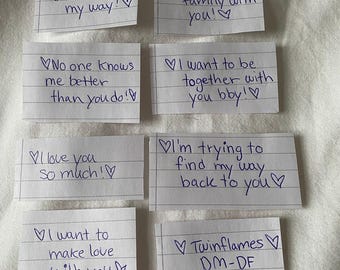 my way!♡
family with
you!♡
♡No one knows
me better
than you do!♡
♡I want to be
together with
you bby!♡
♡I love you
so much!♡
♡I'm trying to
find my way
back to you♡
♡I want to
make love
with you♡
♡Twinflames
DM-DF